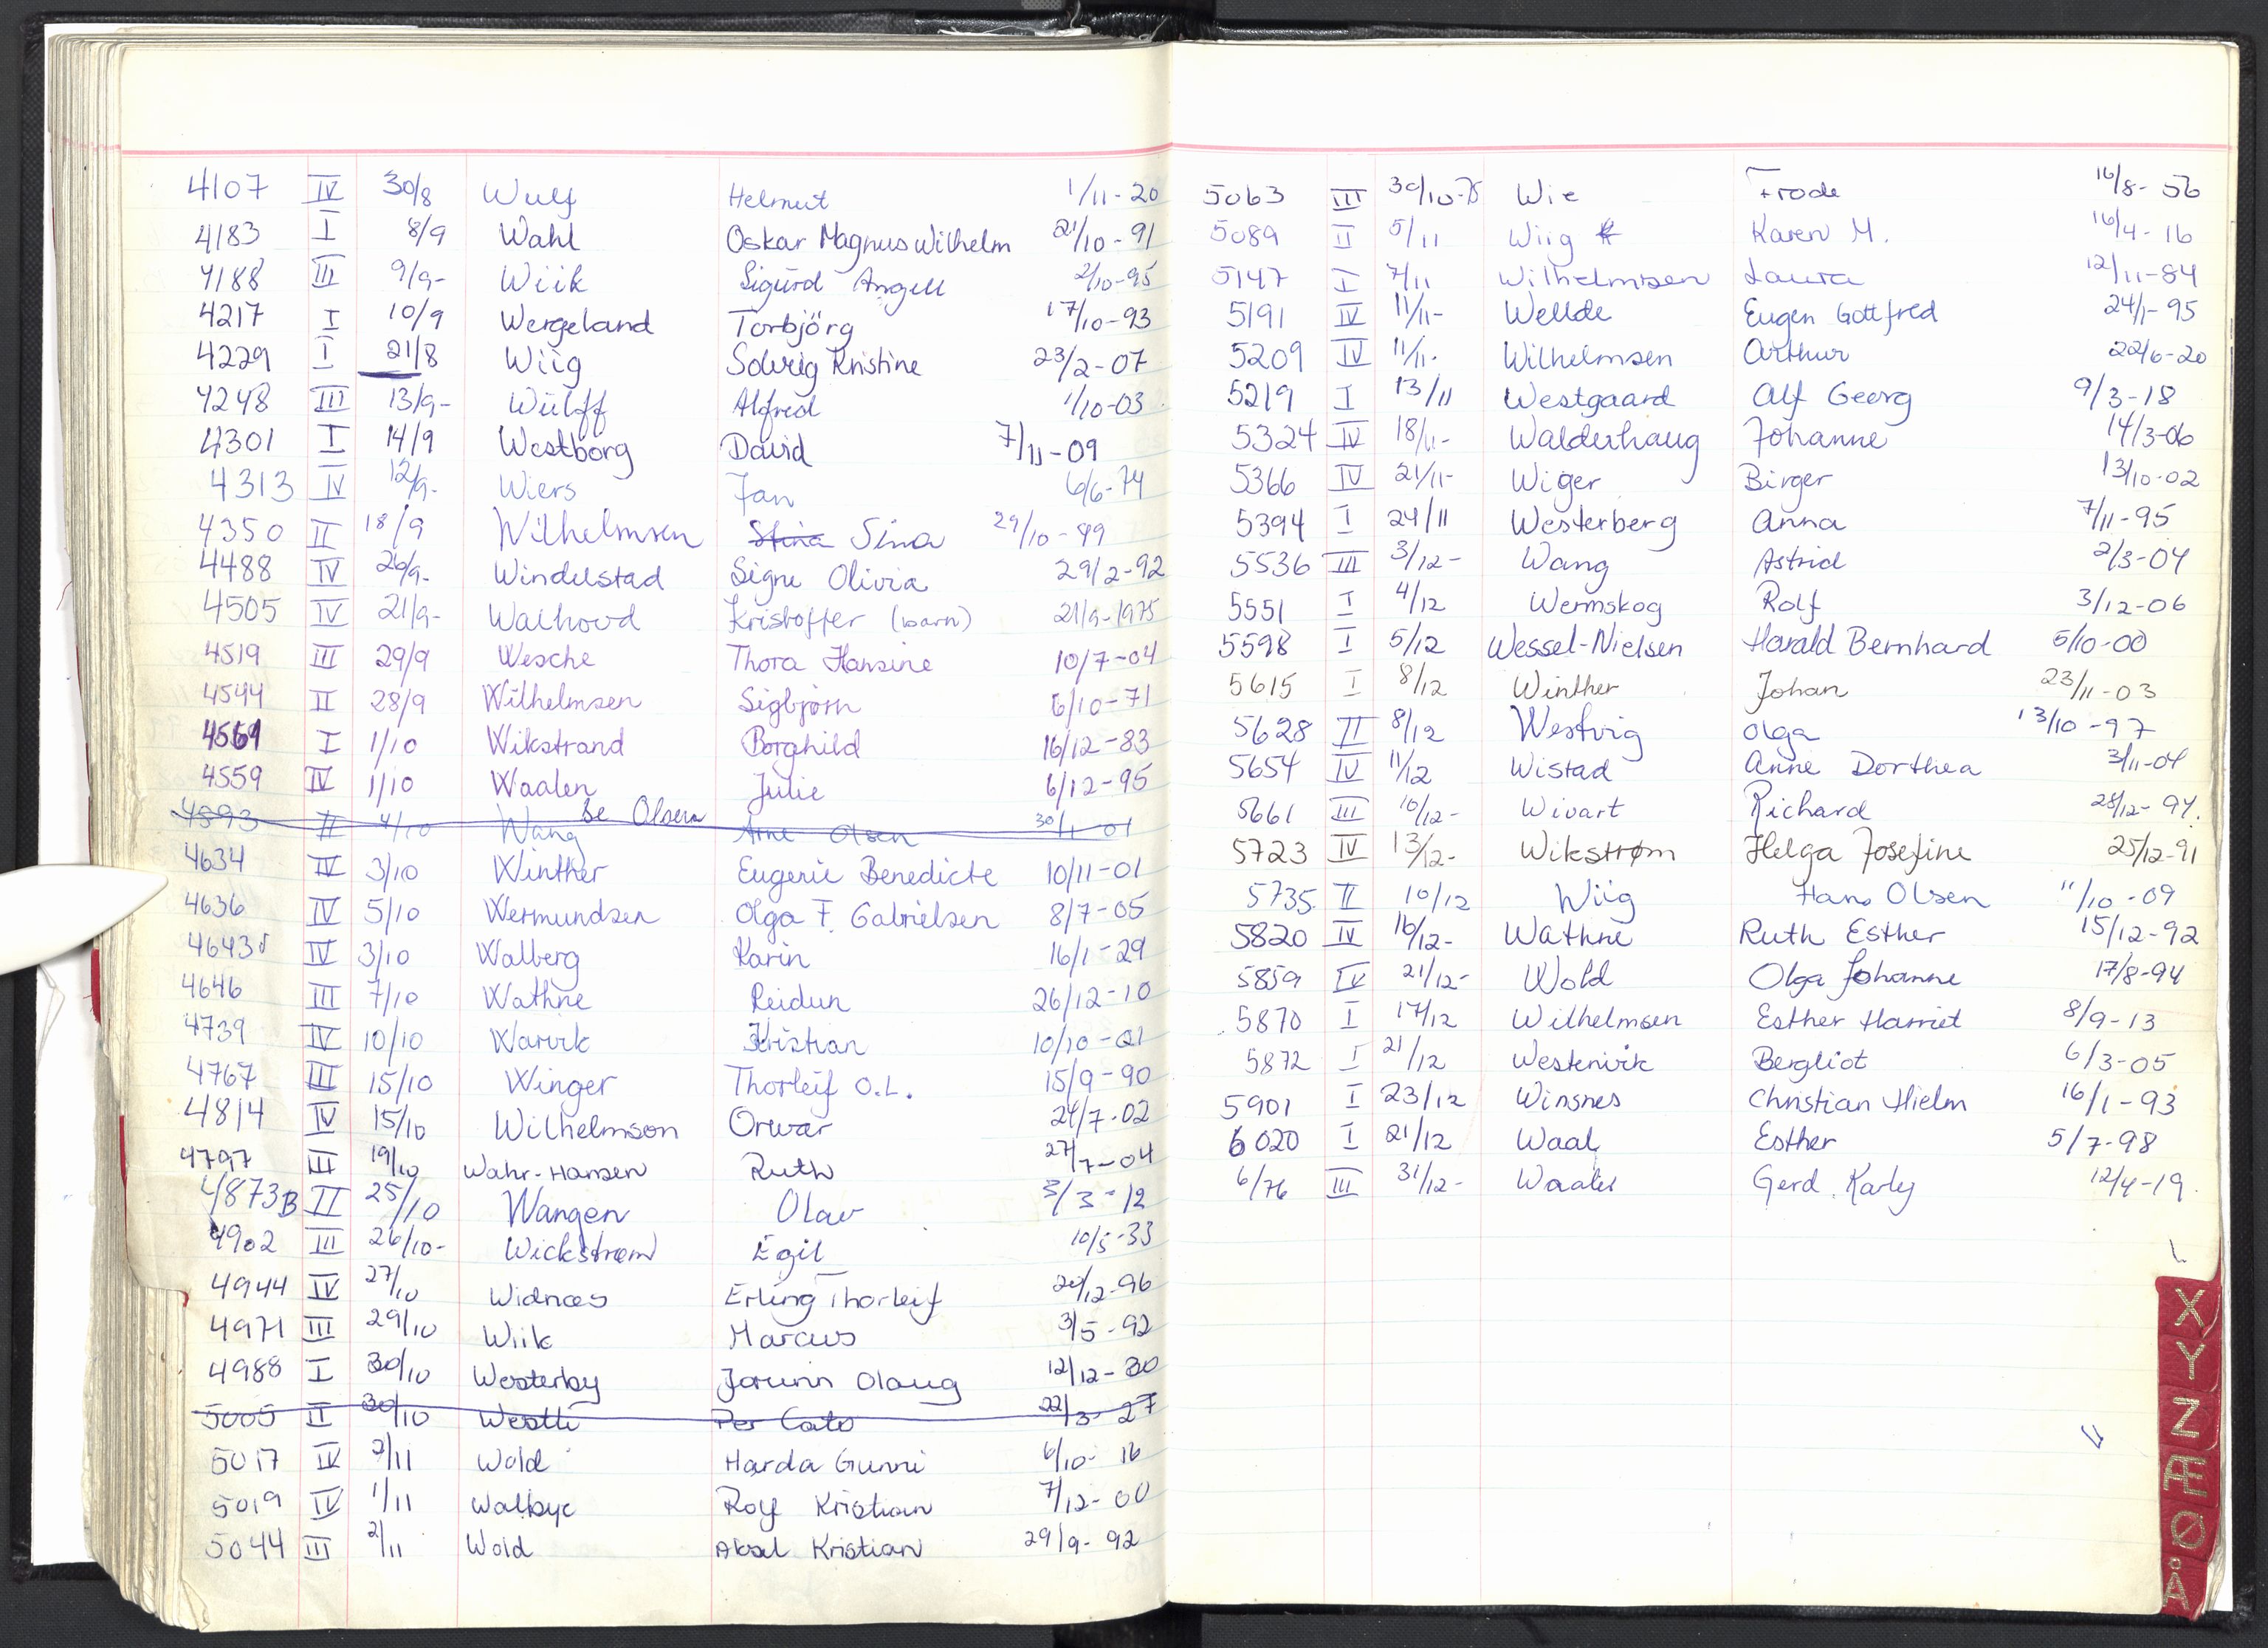 4107 IV 30/8 Wulf Helmut 1/11-20
4183 I 8/9 Wahl Oskar Magnus Wilhelm 21/10-91
4188 III 9/9- Wiik Sigurd Angell 2/10-95
4217 I 10/9 Wergeland Torbjörg 17/10-93
4229 I 21/8 Wiig Solveig Kristine 23/2-07
4248 III 13/9- Wulff Alfred 1/10-03
4301 I 14/9 Westborg David 7/11-09
4313 IV 12/9- Wiers Jan 6/6-74
4350 II 18/9 Wilhelmsen Stina Sina 29/10-99
4488 IV 26/9- Windelstad Signe Olivia 29/2-92
4505 IV 21/9- Walhovd Kristoffer (barn) 21/9-1975
4519 III 29/9 Wesche Thora Hansine 10/7-04
4544 II 28/9 Wilhelmsen Sigbjørn 6/10-71
4561 I 1/10 Wikstrand Borghild 16/12-83
4559 IV 1/10 Waalen Julie 6/12-95
4593 II 4/10 Wang Se Olsen Arne Olsen 30/1-01
4634 IV 3/10 Winther Eugenie Benedicte 10/11-01
4636 IV 5/10 Wermundsen Olga F. Gabrielsen 8/7-05
4643 IV 3/10 Walberg Karin 16/1-29
4646 III 7/10 Wathne Reidun 26/12-10
4739 IV 10/10 Warvik Kristian 10/10-01
4767 III 15/10 Winger Thorleif O.L. 15/9-90
4814 IV 15/10 Wilhelmson Orvar 24/7-02
4797 III 19/10 Wahr-Hansen Ruth 27/7-04
4873B II 25/10 Wangen Olav 3/3-12
4902 III 26/10- Wickstrøm Egil 10/5-33
4944 IV 27/10 Widnæs Erling Thorleif 20/12-96
4971 III 29/10 Wiik Marcus 3/5-92
4988 I 30/10 Westerby Jorunn Olaug 12/12-30
5005 II 30/10 Westli Per Cato 22/3-27
5017 IV 2/11 Wold Harda Gunni 6/10-16
5019 IV 1/11 Walbye Roy Kristian 7/12-00
5044 III 2/11 Wold Aksel Kristian 29/9-92
5063 III 30/10-75 Wie Frode 16/8-56
5089 II 5/11 Wiig Karen M. 16/4-16
5147 I 7/11 Wilhelmsen Laura 12/11-84
5191 IV 11/11- Wellde Eugen Gottfred 24/1-95
5209 IV 11/11- Wilhelmsen Arthur 22/6-20
5219 I 13/11 Westgaard Alf Georg 9/3-18
5324 IV 18/11- Walderhaug Johanne 14/3-06
5366 IV 21/11- Wiger Birger 13/10-02
5394 I 24/11 Westerberg Anna 7/11-95
5536 III 3/12- Wang Astrid 2/3-04
5551 I 4/12 Wermskog Rolf 3/12-06
5598 I 5/12 Wessel-Nielsen Harald Bernhard 5/10-00
5615 I 8/12 Winther Johan 23/11-03
5628 II 8/12 Westvig Olga 13/10-97
5654 IV 11/12 Wistad Anne Dorthea 3/11-04
5661 III 10/12- Wivart Richard 28/12-94.
5723 IV 13/12- Wikstrøm Helga Josefine 25/12-91
5735 II 10/12 Wiig Hans Olsen 11/10-09
5820 IV 16/12- Wathne Ruth Esther 15/12-92
5859 IV 21/12- Wold Olga Johanne 17/8-94
5870 I 17/12 Wilhelmsen Esther Harriet 8/9-13
5872 I 21/12 Westervik Bergliot 6/3-05
5901 I 23/12 Winsnes Christian Hielm 16/1-93
6020 I 21/12 Waal Esther 5/7-98
6/76 III 31/12- Waaler Gerd Karly 12/4-19.
X
Y
Z
Æ
Ø
Å